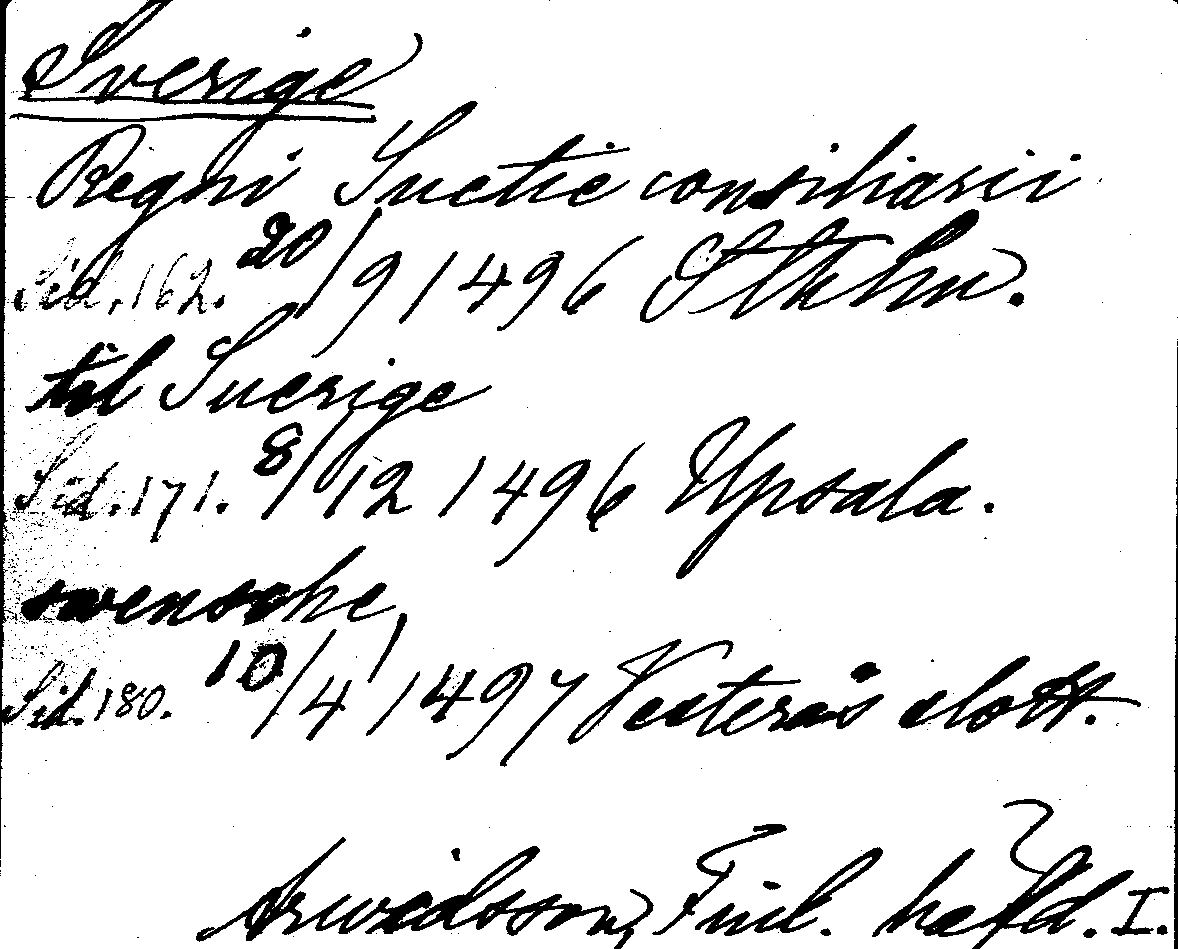 Sverige
Regni Suetie consiliarii
Sid. 162. 20/9 1496 Sthlm.
til Suerige
Sid. 171. 8/12 1496 Upsala.
swensche,
Sid. 180. 10/4 1497 Vesterås slott.
Arwidsson, Finl. häfd. I.